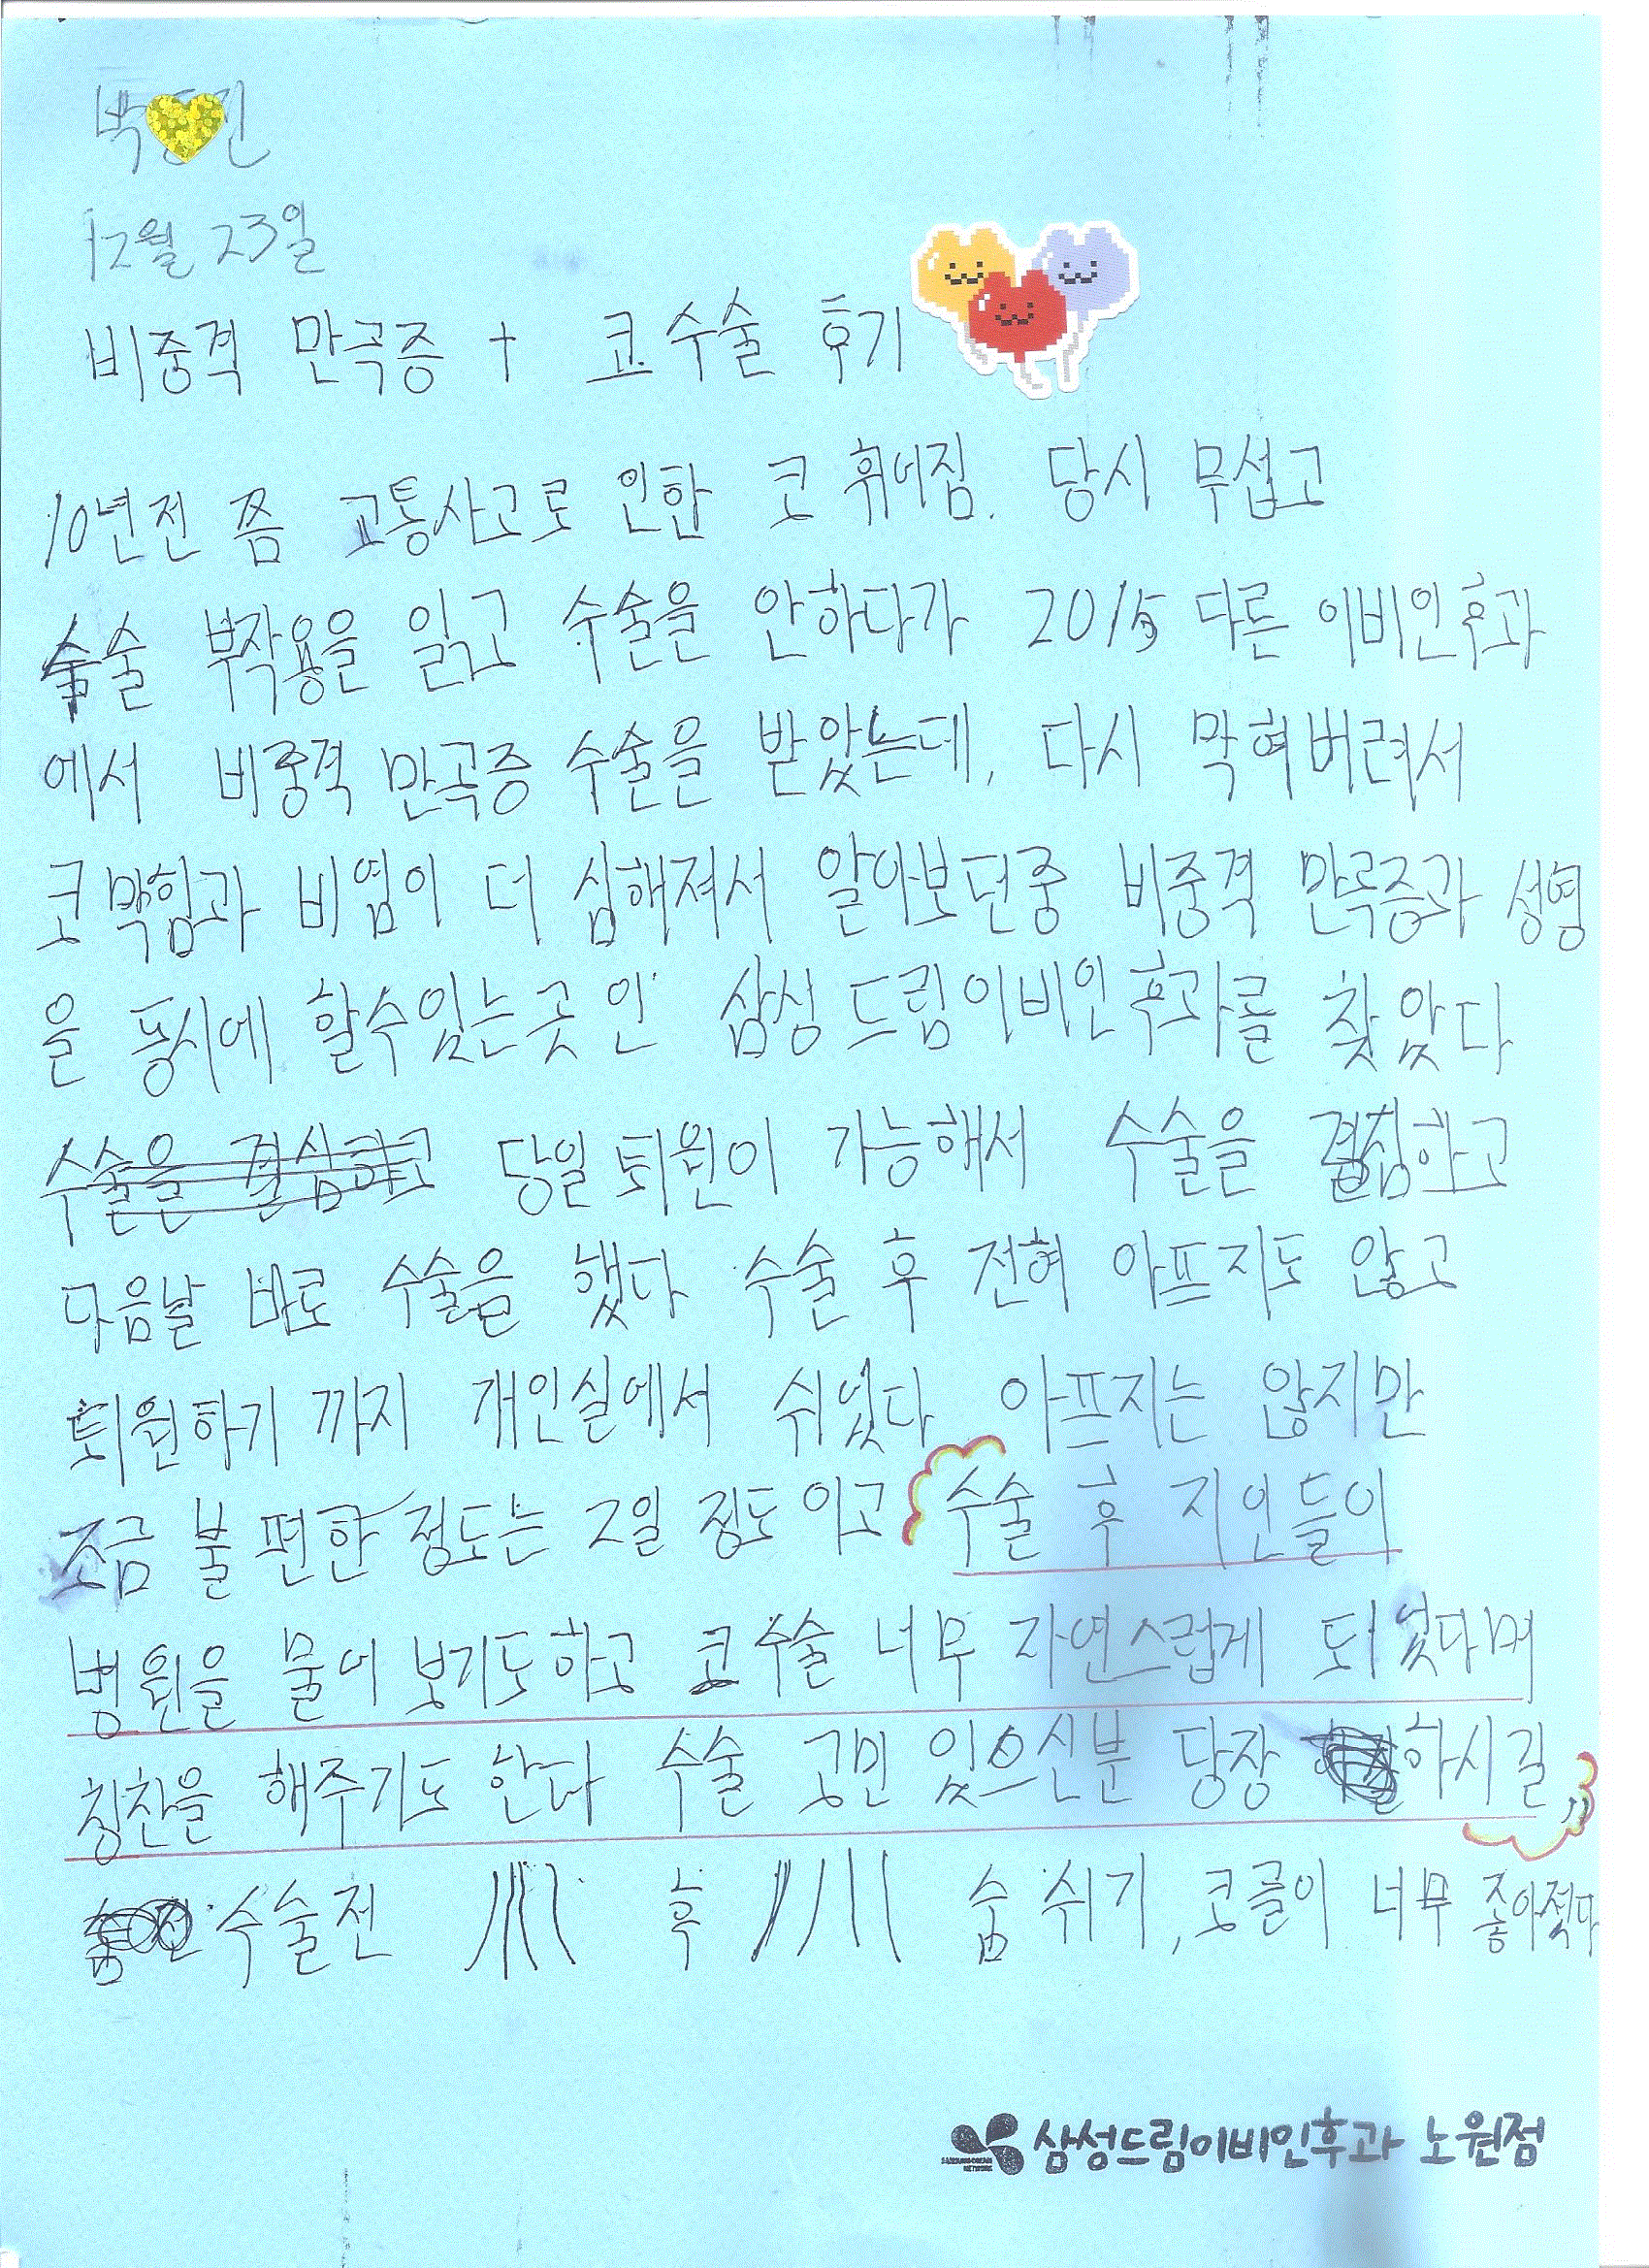 박
12월 23일
비중격 만곡증 + 코 수술 후기
10년전 쯤 교통사고로 인한 코 휘어짐. 당시 무섭고
술 부작용을 읽고 수술을 안하다가 2015 다른 이비인후과
에서 비중격 만곡증 수술을 받았는데, 다시 막혀버려서
코막힘과 비염이 더 심해져서 알아보던중 비중격 만곡증과 성형
을 동시에 할수있는곳인 삼성드림이비인후과를 찾았다
수술을 결심하고 당일퇴원이 가능해서 수술을 결심하고
다음날 바로 수술을 했다 수술 후 전혀 아프지도 않고
퇴원하기 까지 개인실에서 쉬었다 아프지는 않지만
조금 불편한 정도는 2일 정도이고 수술 후 지인들이
병원을 물어보기도하고 코수술 너무 자연스럽게 되었다며
칭찬을 해주기도 한다 수술 고민 있으신분 당장 하시길
수술전 후 숨쉬기, 코골이 너무 좋아졌다
삼성드림이비인후과 노원점